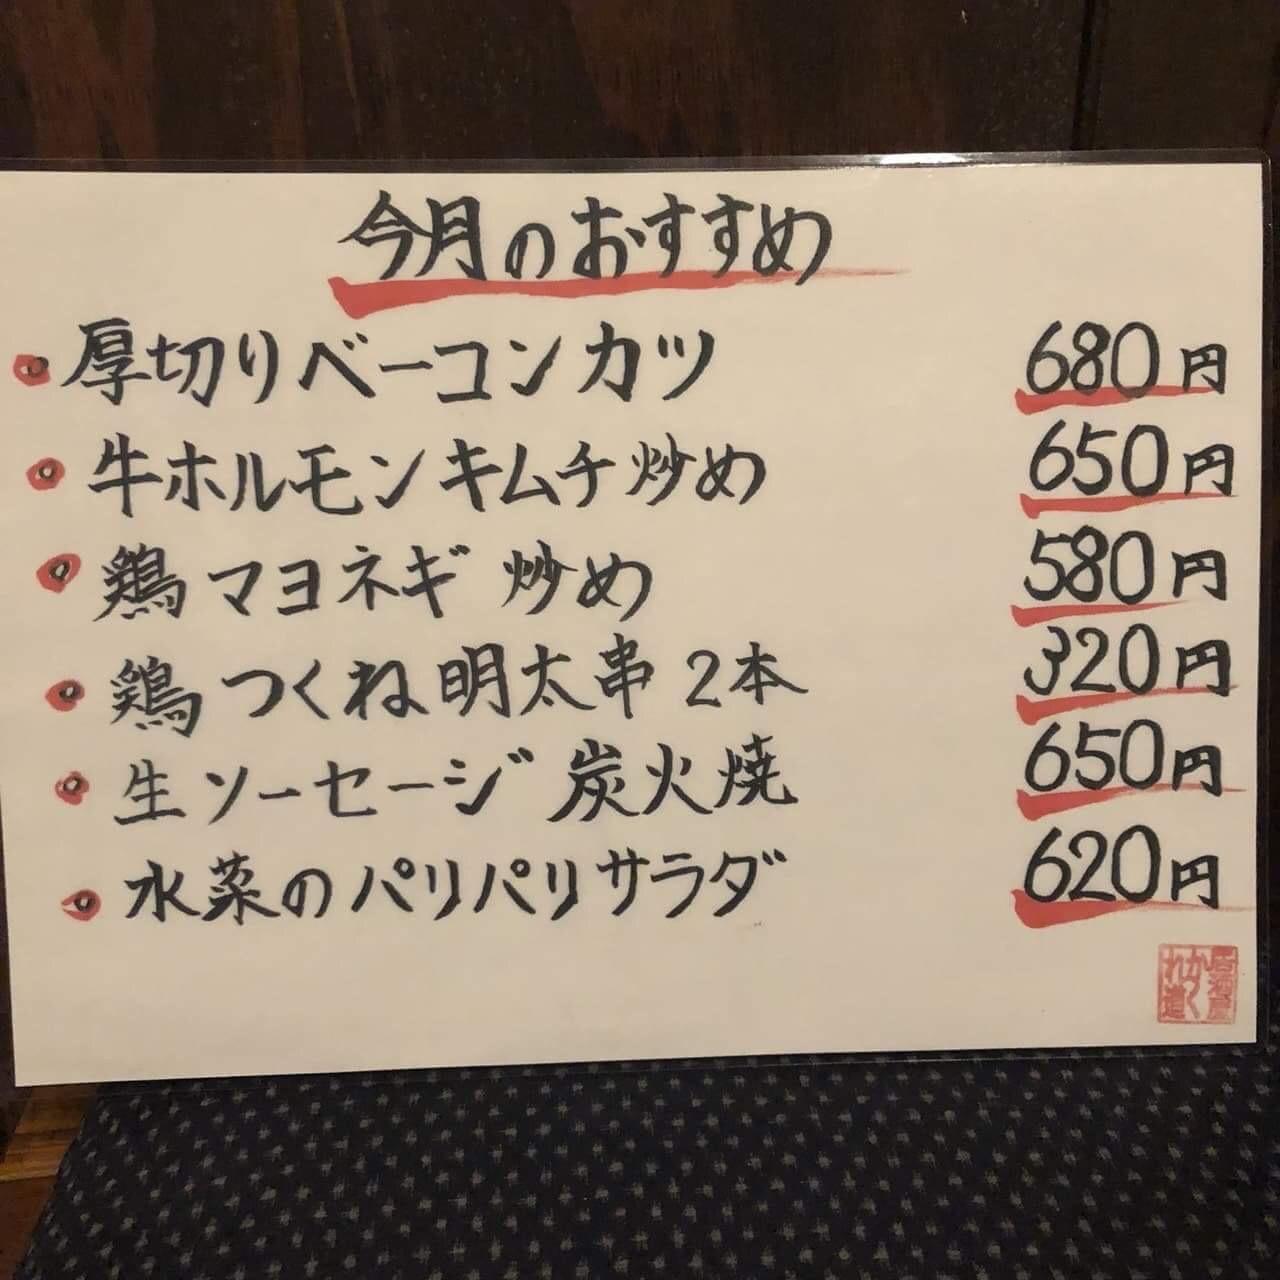 今月のおすすめ
厚切りベーコンカツ 680円
牛ホルモンキムチ炒め 650円
鶏マヨネギ炒め 580円
鶏つくね明太串2本 320円
生ソーセージ炭火焼 650円
水菜のパリパリサラダ 620円
居酒屋
かくれ道